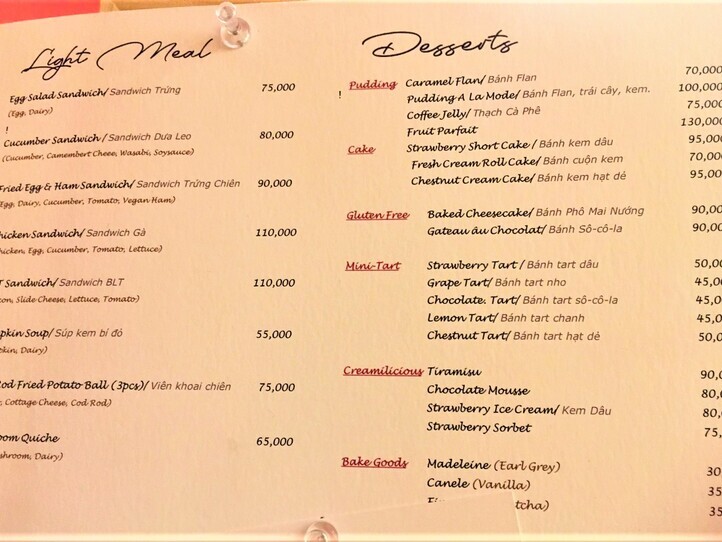 Light Meal
Egg Salad Sandwich/ Sandwich Trứng 75,000
(Egg, Dairy)
!
Cucumber Sandwich / Sandwich Dưa Leo 80,000
(Cucumber, Camembert Cheee, Wasabi, Soysauce)
Fried Egg & Ham Sandwich/ Sandwich Trứng Chiên 90,000
Egg, Dairy, Cucumber, Tomato, Vegan Ham)
hicken Sandwich/ Sandwich Gà 110,000
hicken, Egg, Cucumber, Tomato, Lettuce)
T Sandwich/ Sandwich BLT 110,000
con, Slide Cheese, Lettuce, Tomato)
pkin Soup/ Súp kem bí đỏ 55,000
pkin, Dairy)
od Fried Potato Ball (3pcs)/ Viên khoai chiên 75,000
, Cottage Cheese, Cod Rod)
oom Quiche 65,000
shroom, Dairy)
Desserts
Pudding Caramel Flan/ Bánh Flan 70,000
! Pudding A La Mode/ Bánh Flan, trái cây, kem. 100,000
Coffee Jelly/ Thạch Cà Phê 75,000
Fruit Parfait 130,000
Cake Strawberry Short Cake / Bánh kem dâu 95,000
Fresh Cream Roll Cake/ Bánh cuộn kem 70,000
Chestnut Cream Cake/ Bánh kem hạt dẻ 95,000
Gluten Free Baked Cheesecake/ Bánh Phô Mai Nướng 90,00
Gateau âu Chocolat/ Bánh Sô-cô-la 90,00
Mini-Tart Strawberry Tart / Bánh tart dâu 50,0
Grape Tart/ Bánh tart nho 45,0
Chocolate. Tart/ Bánh tart sô-cô-la 45,0
Lemon Tart/ Bánh tart chanh 45,0
Chestnut Tart/ Bánh tart hạt dẻ 50,0
Creamilicious Tiramisu 90,0
Chocolate Mousse 80,0
Strawberry Ice Cream/ Kem Dâu 80,
Strawberry Sorbet 75,
Bake Goods Madeleine (Earl Grey) 30
Canele (Vanilla) 35
tcha) 35